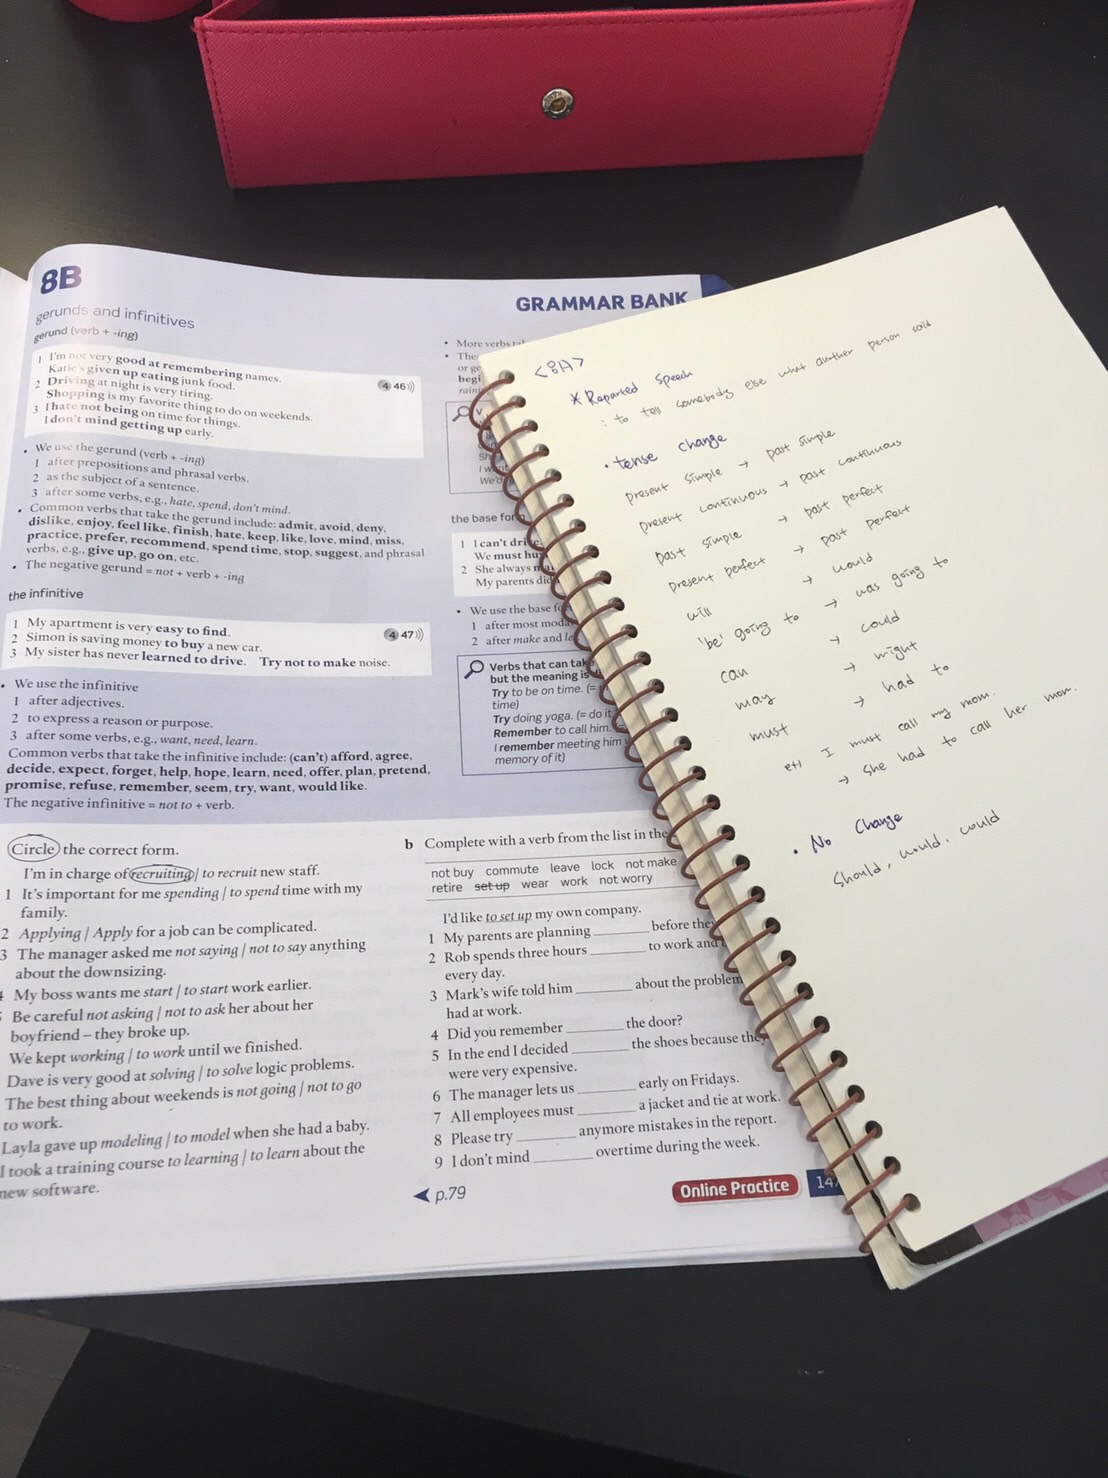 8B
GRAMMAR BANK
gerunds and infinitives
gerund (verb + -ing)
1 I'm not very good at remembering names.
Katie's given up eating junk food.
2 Driving at night is very tiring.
Shopping is my favorite thing to do on weekends.
3 I hate not being on time for things.
I don't mind getting up early.
4 46))
• We use the gerund (verb + -ing)
1 after prepositions and phrasal verbs.
2 as the subject of a sentence.
3 after some verbs, e.g., hate, spend, don't mind.
• Common verbs that take the gerund include: admit, avoid, deny,
dislike, enjoy, feel like, finish, hate, keep, like, love, mind, miss,
practice, prefer, recommend, spend time, stop, suggest, and phrasal
verbs, e.g., give up, go on, etc.
• The negative gerund = not + verb + -ing
the infinitive
1 My apartment is very easy to find.
2 Simon is saving money to buy a new car.
3 My sister has never learned to drive. Try not to make noise.
4 47))
• We use the infinitive
1 after adjectives.
2 to express a reason or purpose.
3 after some verbs, e.g., want, need, learn.
Common verbs that take the infinitive include: (can't) afford, agree,
decide, expect, forget, help, hope, learn, need, offer, plan, pretend,
promise, refuse, remember, seem, try, want, would like.
The negative infinitive = not to + verb.
Circle the correct form.
I'm in charge of recruiting / to recruit new staff.
1 It's important for me spending / to spend time with my
family.
2 Applying / Apply for a job can be complicated.
3 The manager asked me not saying / not to say anything
about the downsizing.
My boss wants me start / to start work earlier.
Be careful not asking / not to ask her about her
boyfriend – they broke up.
We kept working / to work until we finished.
Dave is very good at solving / to solve logic problems.
The best thing about weekends is not going / not to go
to work.
Layla gave up modeling / to model when she had a baby.
I took a training course to learning / to learn about the
new software.
• More verbs
•
or
We'd
the base
1 I can't
We must
2 She always
My parents
• We use the base
1 after most
2 after make and
Verbs that can
but the meaning is
Try to be on time. (=
time)
Try doing yoga. (= do it
Remember to call him.
I remember meeting him
memory of it)
b Complete with a verb from the list in the
not buy commute leave lock not make
retire set up wear work not worry
I'd like to set up my own company.
1 My parents are planning ______ before they
2 Rob spends three hours ______ to work and
every day.
3 Mark's wife told him ______ about the problem
had at work.
4 Did you remember ______ the door?
5 In the end I decided ______ the shoes because they
were very expensive.
6 The manager lets us ______ early on Fridays.
7 All employees must ______ a jacket and tie at work.
8 Please try ______ anymore mistakes in the report.
9 I don't mind ______ overtime during the week.
p.79
Online Practice
147
<8A>
* Reported speech
: to tell somebody else what another person said
• tense change
present simple → past simple
present continuous → past continuous
past simple → past perfect
present perfect → past perfect
will → would
'be' going to → was going to
can → could
may → might
must → had to
ex) I must call my mom.
→ she had to call her mom.
• No Change
should, would, could